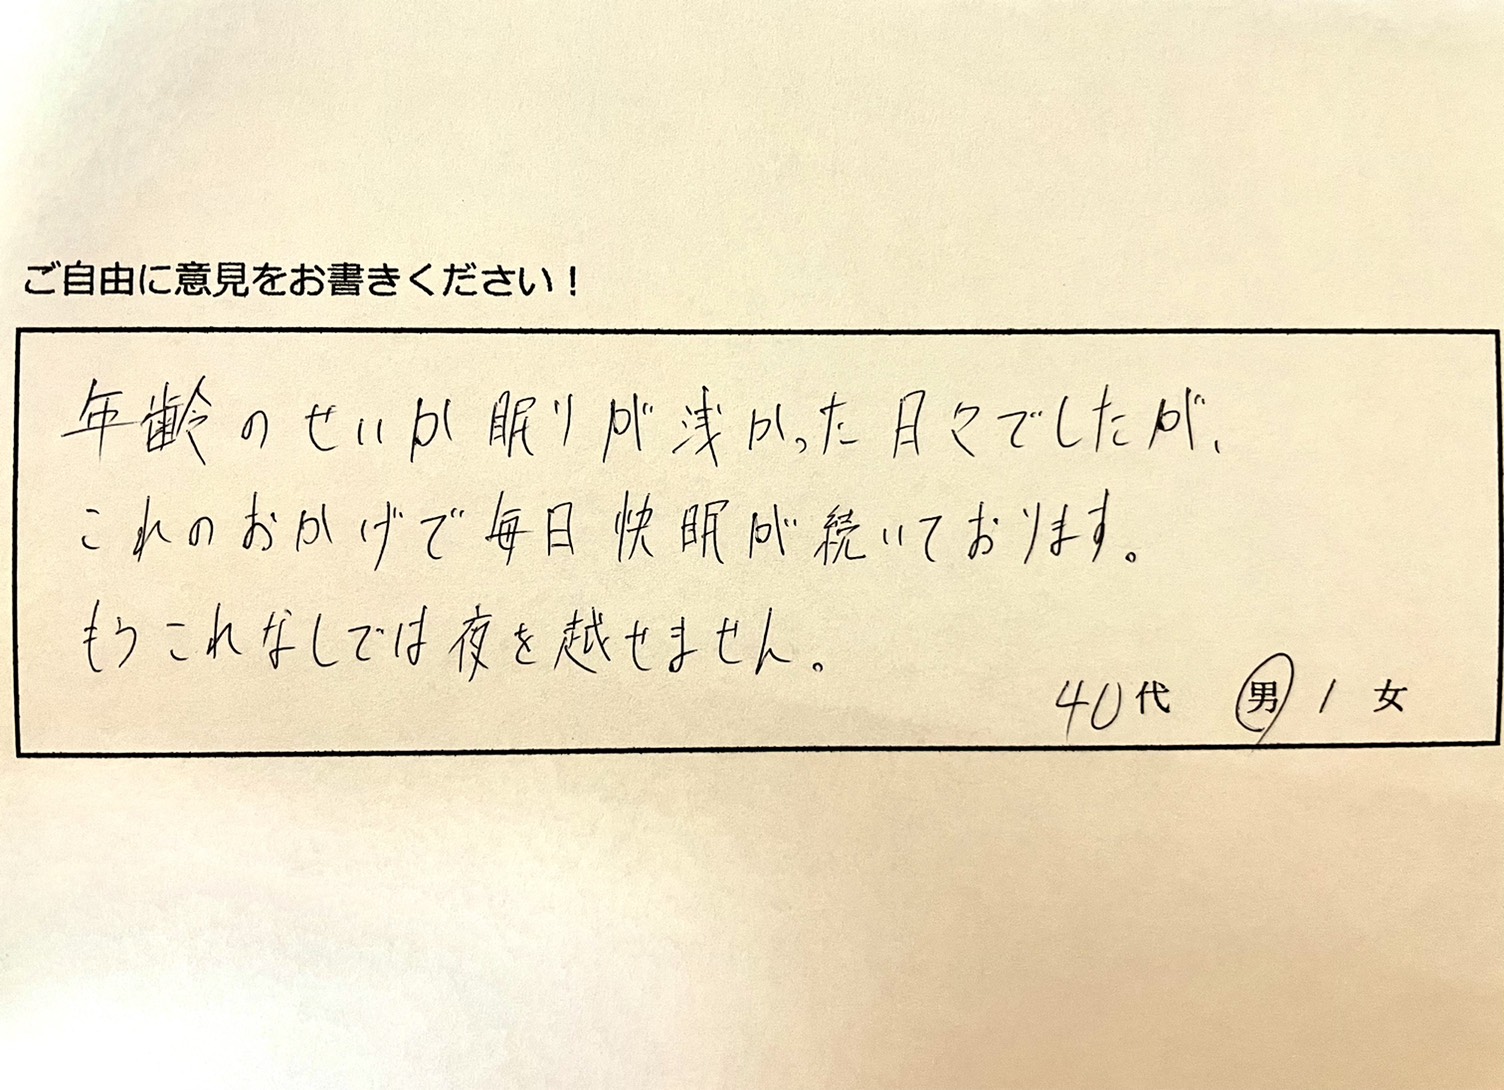 ご自由に意見をお書きください！
年齢のせいか眠りが浅かった日々でしたが、
これのおかげで毎日快眠が続いております。
もうこれなしでは夜を越せません。
40代 男 / 女